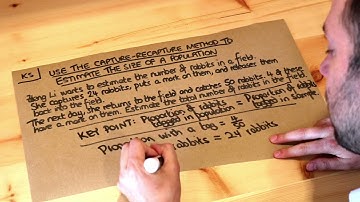 K5 USE THE CAPTURE-RECAPTURE METHOD TO
ESTIMATE THE SIZE OF A POPULATION
Zhong Li wants to estimate the number of rabbits in a field.
She captures 24 rabbits, puts a mark on them, and releases them
back into the field.
The next day, she returns to the field and catches 50 rabbits. 4 of these
have a mark on them. Estimate the total number of rabbits in the field.
KEY POINT: Proportion of rabbits tagged in population = Proportion of rabbits tagged in sample
Proportion with a tag = 4/50
rabbits = 24 rabbits